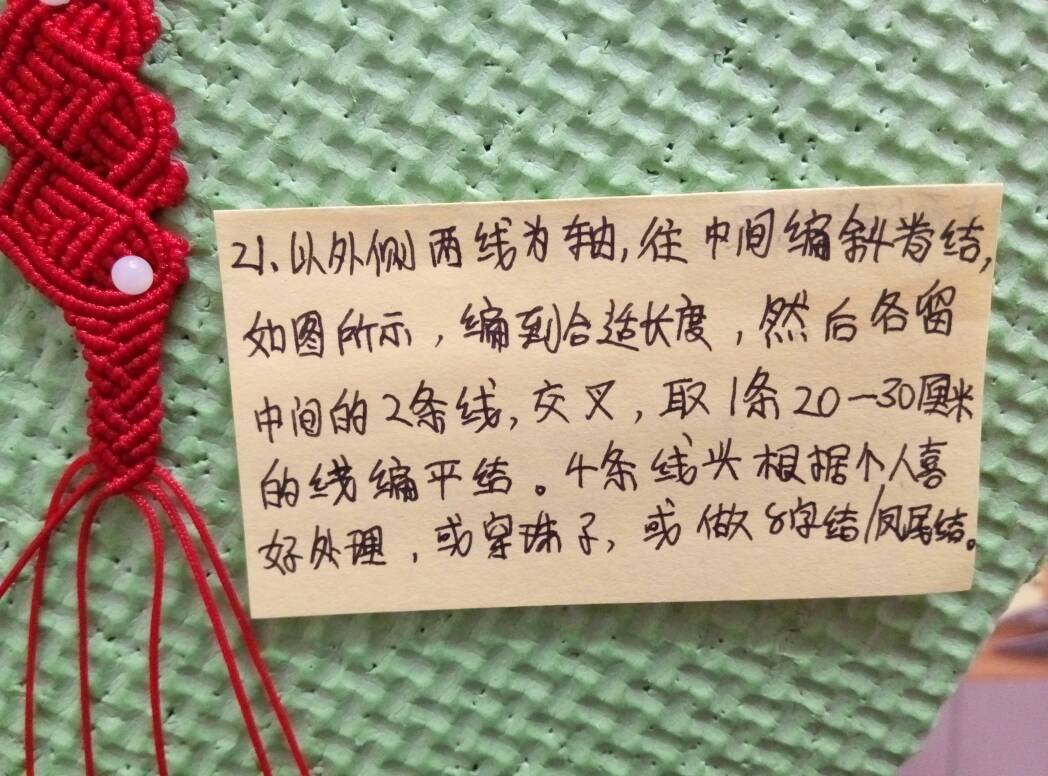 21、以外侧两线为轴,往中间编斜卷结,
如图所示,编到合适长度,然后各留
中间的2条线,交叉,取1条20-30厘米
的线编平结。4条线头根据个人喜
好处理,或穿珠子,或做8字结/凤尾结。